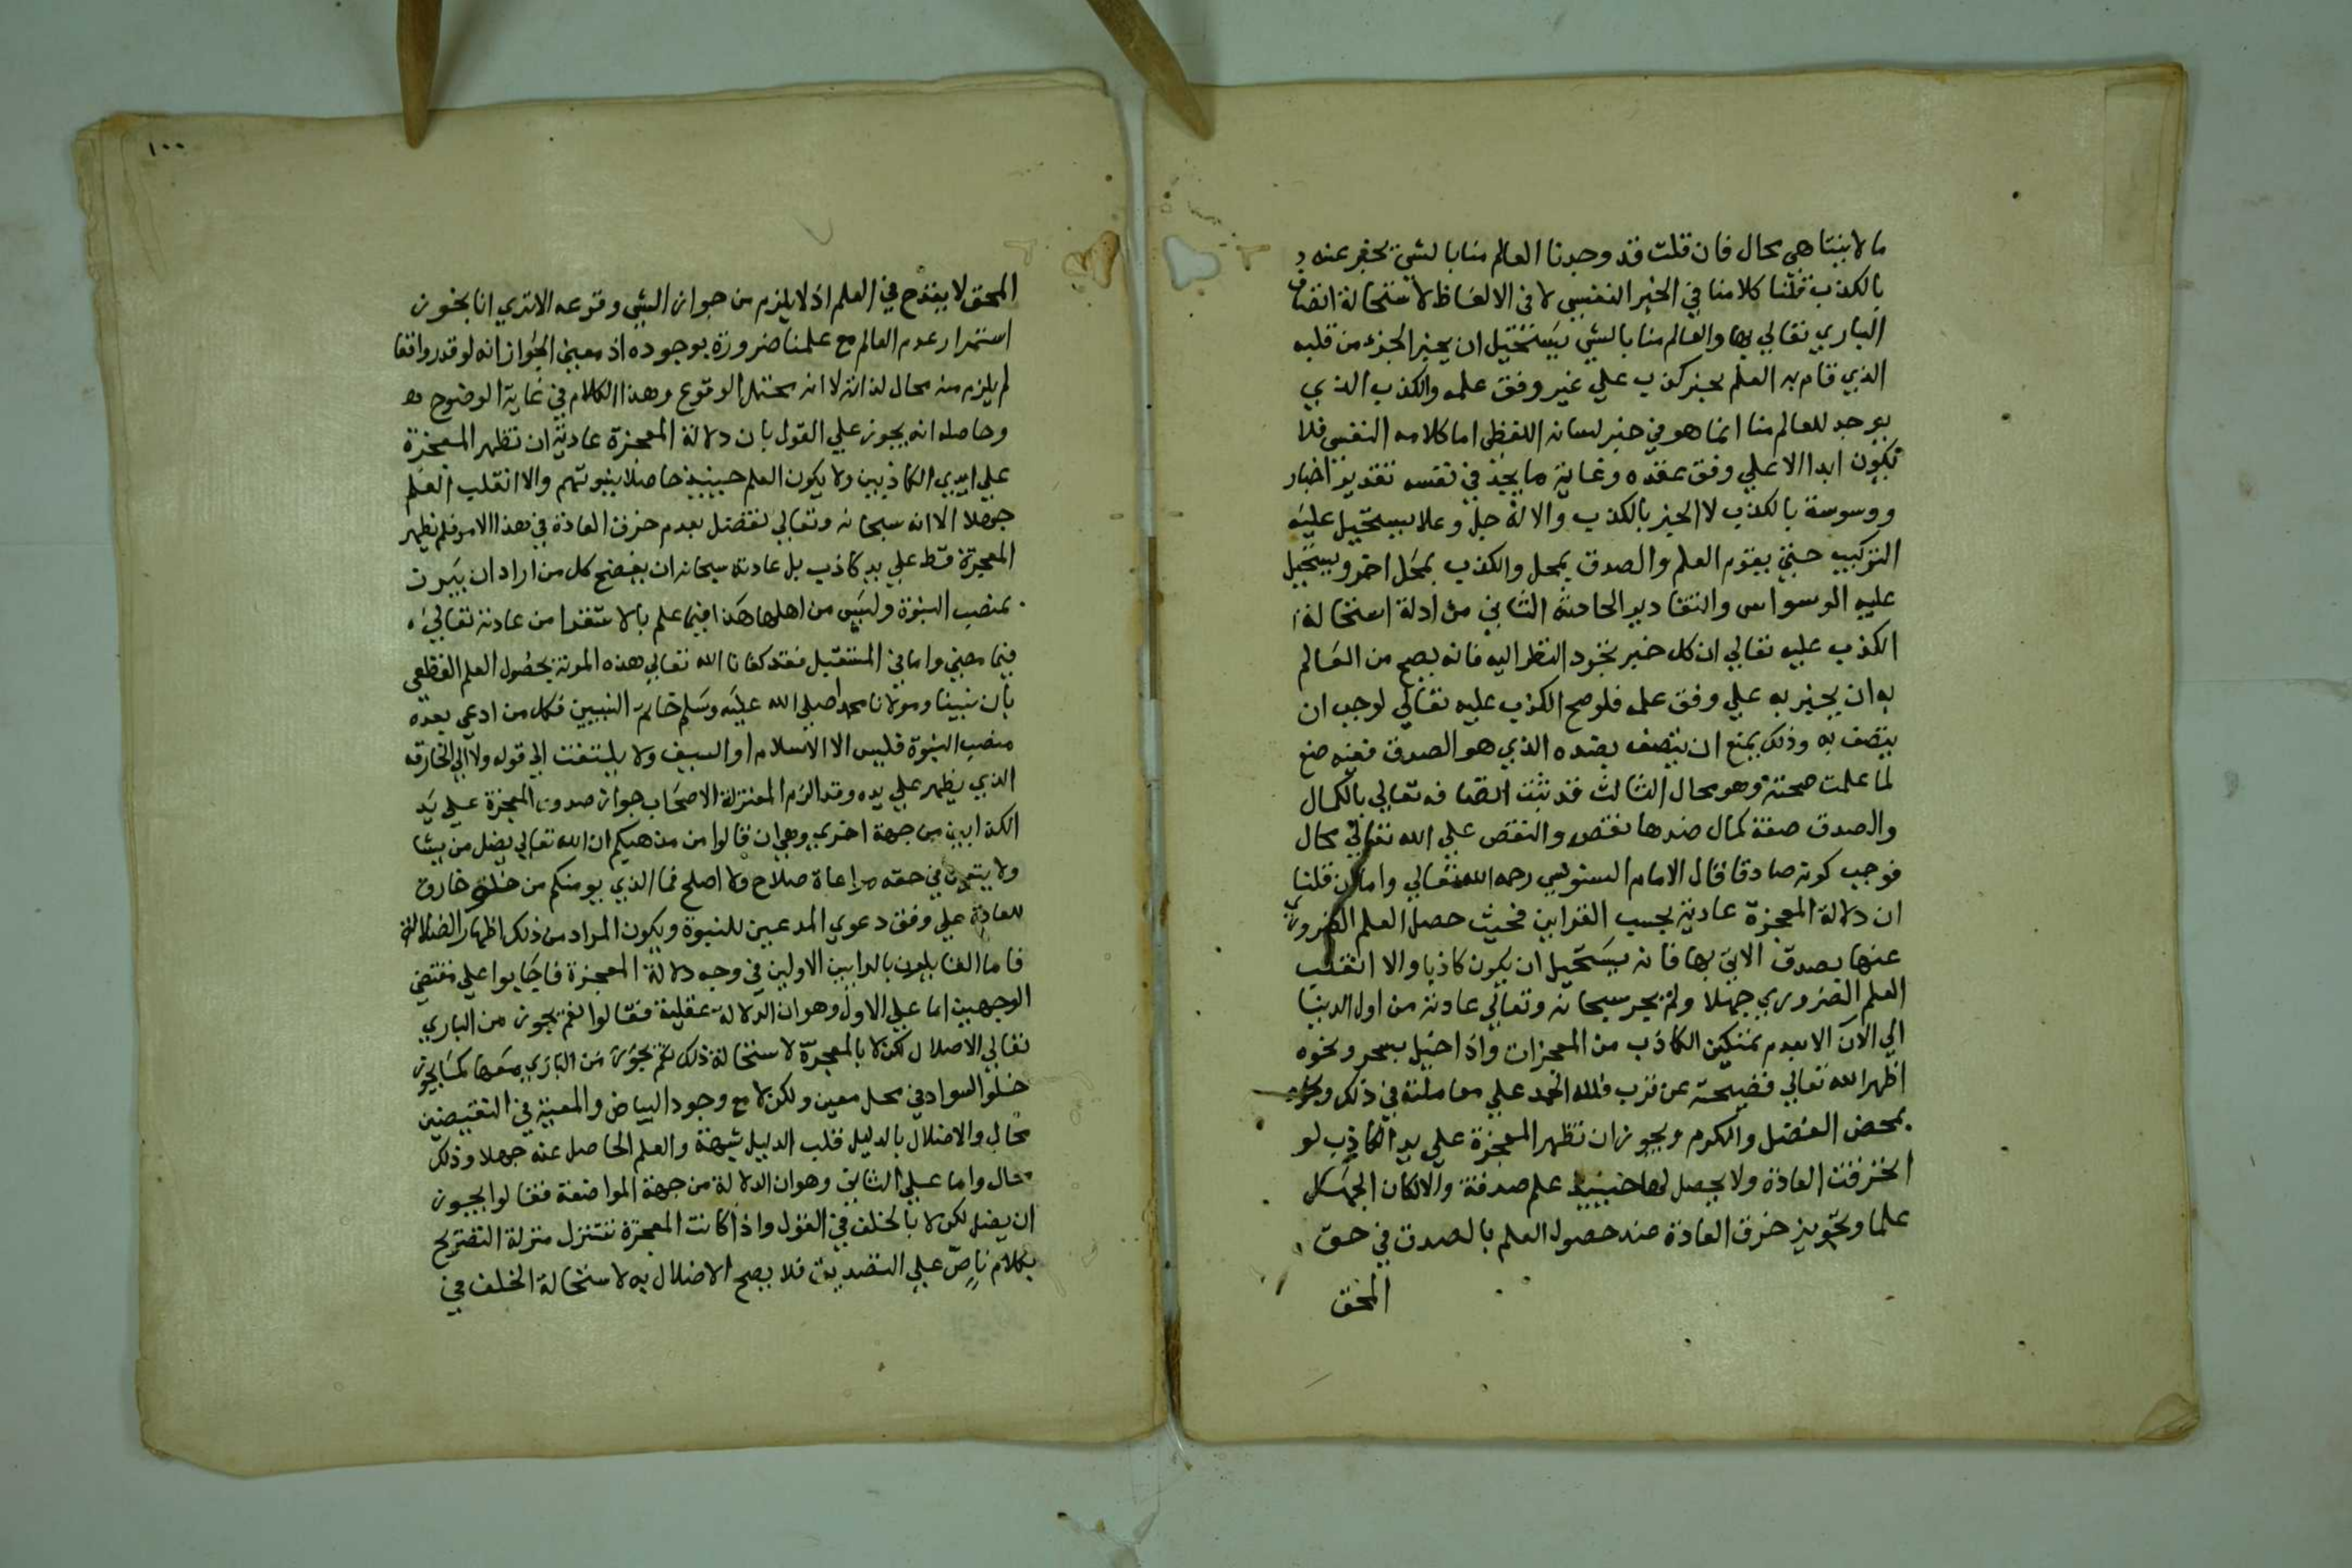 ما لا يتناهى محال فان قلت قد وجدنا العالم منا بالشي يخبر عنه
بالكذب قلنا كلامنا في الخبر النفسي لا في الالفاظ لاستحالة اتصاف
الباري تعالي بها والعالم منا بالشي يستحيل ان يخبر الجزء من قلبه
الذي قام به العلم بخبر كذب علي غير وفق علمه والكذب الذي
يوجد للعالم منا انما هو في خبر لسانه اللفظي اما كلامه النفسي فلا
تكون ابدا الا علي وفق عقده وغاية ما يجد في نفسه تقدير اخبار
ووسوسة بالكذب لا الخبر بالكذب والاله جل وعلا يستحيل عليه
التركيب حتي يقوم العلم والصدق بمحل والكذب بمحل اخر ويستحيل
عليه الوسواس والتقادير الحادثه الثاني من ادلة استحالة
الكذب عليه تعالي ان كل خبر بمجرد النظر اليه فانه يصح من العالم
به ان يخبر به علي وفق علمه فلو صح الكذب عليه تعالي لوجب ان
يتصف به وذلك يمنع ان يتصف بضده الذي هو الصدق فعنه منع
لما علمت صحته وهو محال الثالث قد ثبت اتصافه تعالي بالكمال
والصدق صفة كمال ضدها نقص والنقص علي الله تعالي محال
فوجب كونه صادقا قال الامام السنوسي رحمه الله تعالي واما ان قلنا
ان دلالة المعجزة عادية بحسب القراين فحيث حصل العلم الضروري
عنها بصدق الاتي بها فانه يستحيل ان يكون كاذبا والا انقلب
العلم الضروري جهلا ولم يجر سبحانه وتعالي عادته من اول الدنيا
الي الان الا بعدم تمكين الكاذب من المعجزات واذا خيل بسحر ونحوه
اظهر الله تعالي فضيحته عن قرب فلله الحمد علي معاملته في ذلك
بمحض الفضل والكرم ويجوز ان تظهر المعجزة علي يد الكاذب لو
انخرقت العادة ولا يحصل لها حينيذ علم صدقة والا لكان الجهل
علما وتجويز خرق العادة عند حصول العلم بالصدق في حق
المحق
١٠٠
المحق لا يقدح في العلم اذ لا يلزم من جواز الشي وقوعه الا تري انا نجوز
استمرار عدم العالم مع علمنا ضرورة بوجوده اذ معني الجواز انه لو قدر واقعا
لم يلزم منه محال لذاته لا انه محتمل الوقوع وهذا الكلام في غاية الوضوح
وحاصله انه يجوز علي القول بان دلالة المعجزة عادية ان تظهر المعجزة
علي ايدي الكاذبين ولا يكون العلم حينيذ حاصلا بنبوتهم والا انقلب العلم
جهلا الا انه سبحانه وتعالي تفضل بعدم خرق العادة في هذا الامر فلم تظهر
المعجزة قط علي يد كاذب بل عادته سبحانه ان يفضح كل من اراد ان
بمنصب النبوة وليس من اهلها هكذا فيما علم بالاستقرا من عادته تعالي
فيما مضي واما في المستقبل فقد كفانا الله تعالي هذه المونة بحصول العلم القطعي
بان نبينا ومولانا محمدا صلي الله عليه وسلم خاتم النبيين فكل من ادعي بعده
منصب النبوة فليس الا الاسلام او السيف ولا يلتفت الي قوله ولا الي الخارق
الذي يظهر علي يده وقد الزم المعتزلة الاصحاب جواز صدور المعجزة علي يد
الكذابين من جهة اخري وهي ان قالوا من مذهبكم ان الله تعالي يضل من يشا
ولا يتعين في حقه مراعاة صلاح ولا اصلح فما الذي يومنكم من خلق خارق
للعادة علي وفق دعوي المدعين للنبوة ويكون المراد من ذلك اظهار الضلالة
فاما القايلون بالرايين الاولين في وجه دلالة المعجزة فاجابوا علي مقتضي
الوجهين اما علي الاول وهو ان الدلالة عقلية فقالوا نعم يجوز من الباري
تعالي الاضلال لكن لا بالمعجزة لاستحالة ذلك نعم يجوز من الباري معها كما يجوز
خلو السواد في محل معين ولكن لا مع وجود البياض والمعية في النقيضين
محال والاضلال بالدليل قلب الدليل شبهة والعلم الحاصل عنه جهلا وذلك
محال واما علي الثاني وهو ان الدلالة من جهة المواضعة فقالوا يجوز
ان يضل لكن لا بالخلف في القول واذا كانت المعجزة تتنزل منزلة التصريح
بكلام ناص علي التصديق فلا يصح الاضلال به لاستحالة الخلف في